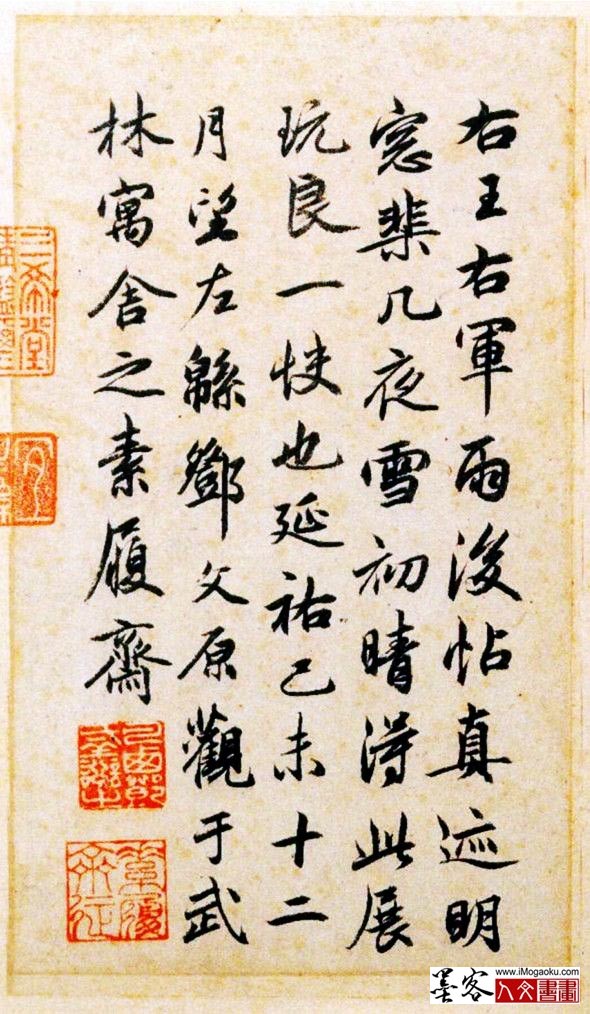 右王右軍雨後帖真迹明
窓棐几夜雪初晴得此展
玩良一快也延祐己未十二
月望左緜鄧文原觀于武
林寓舍之素履齋
三希堂
墨客
www.iMogaoku.com
人文書畫